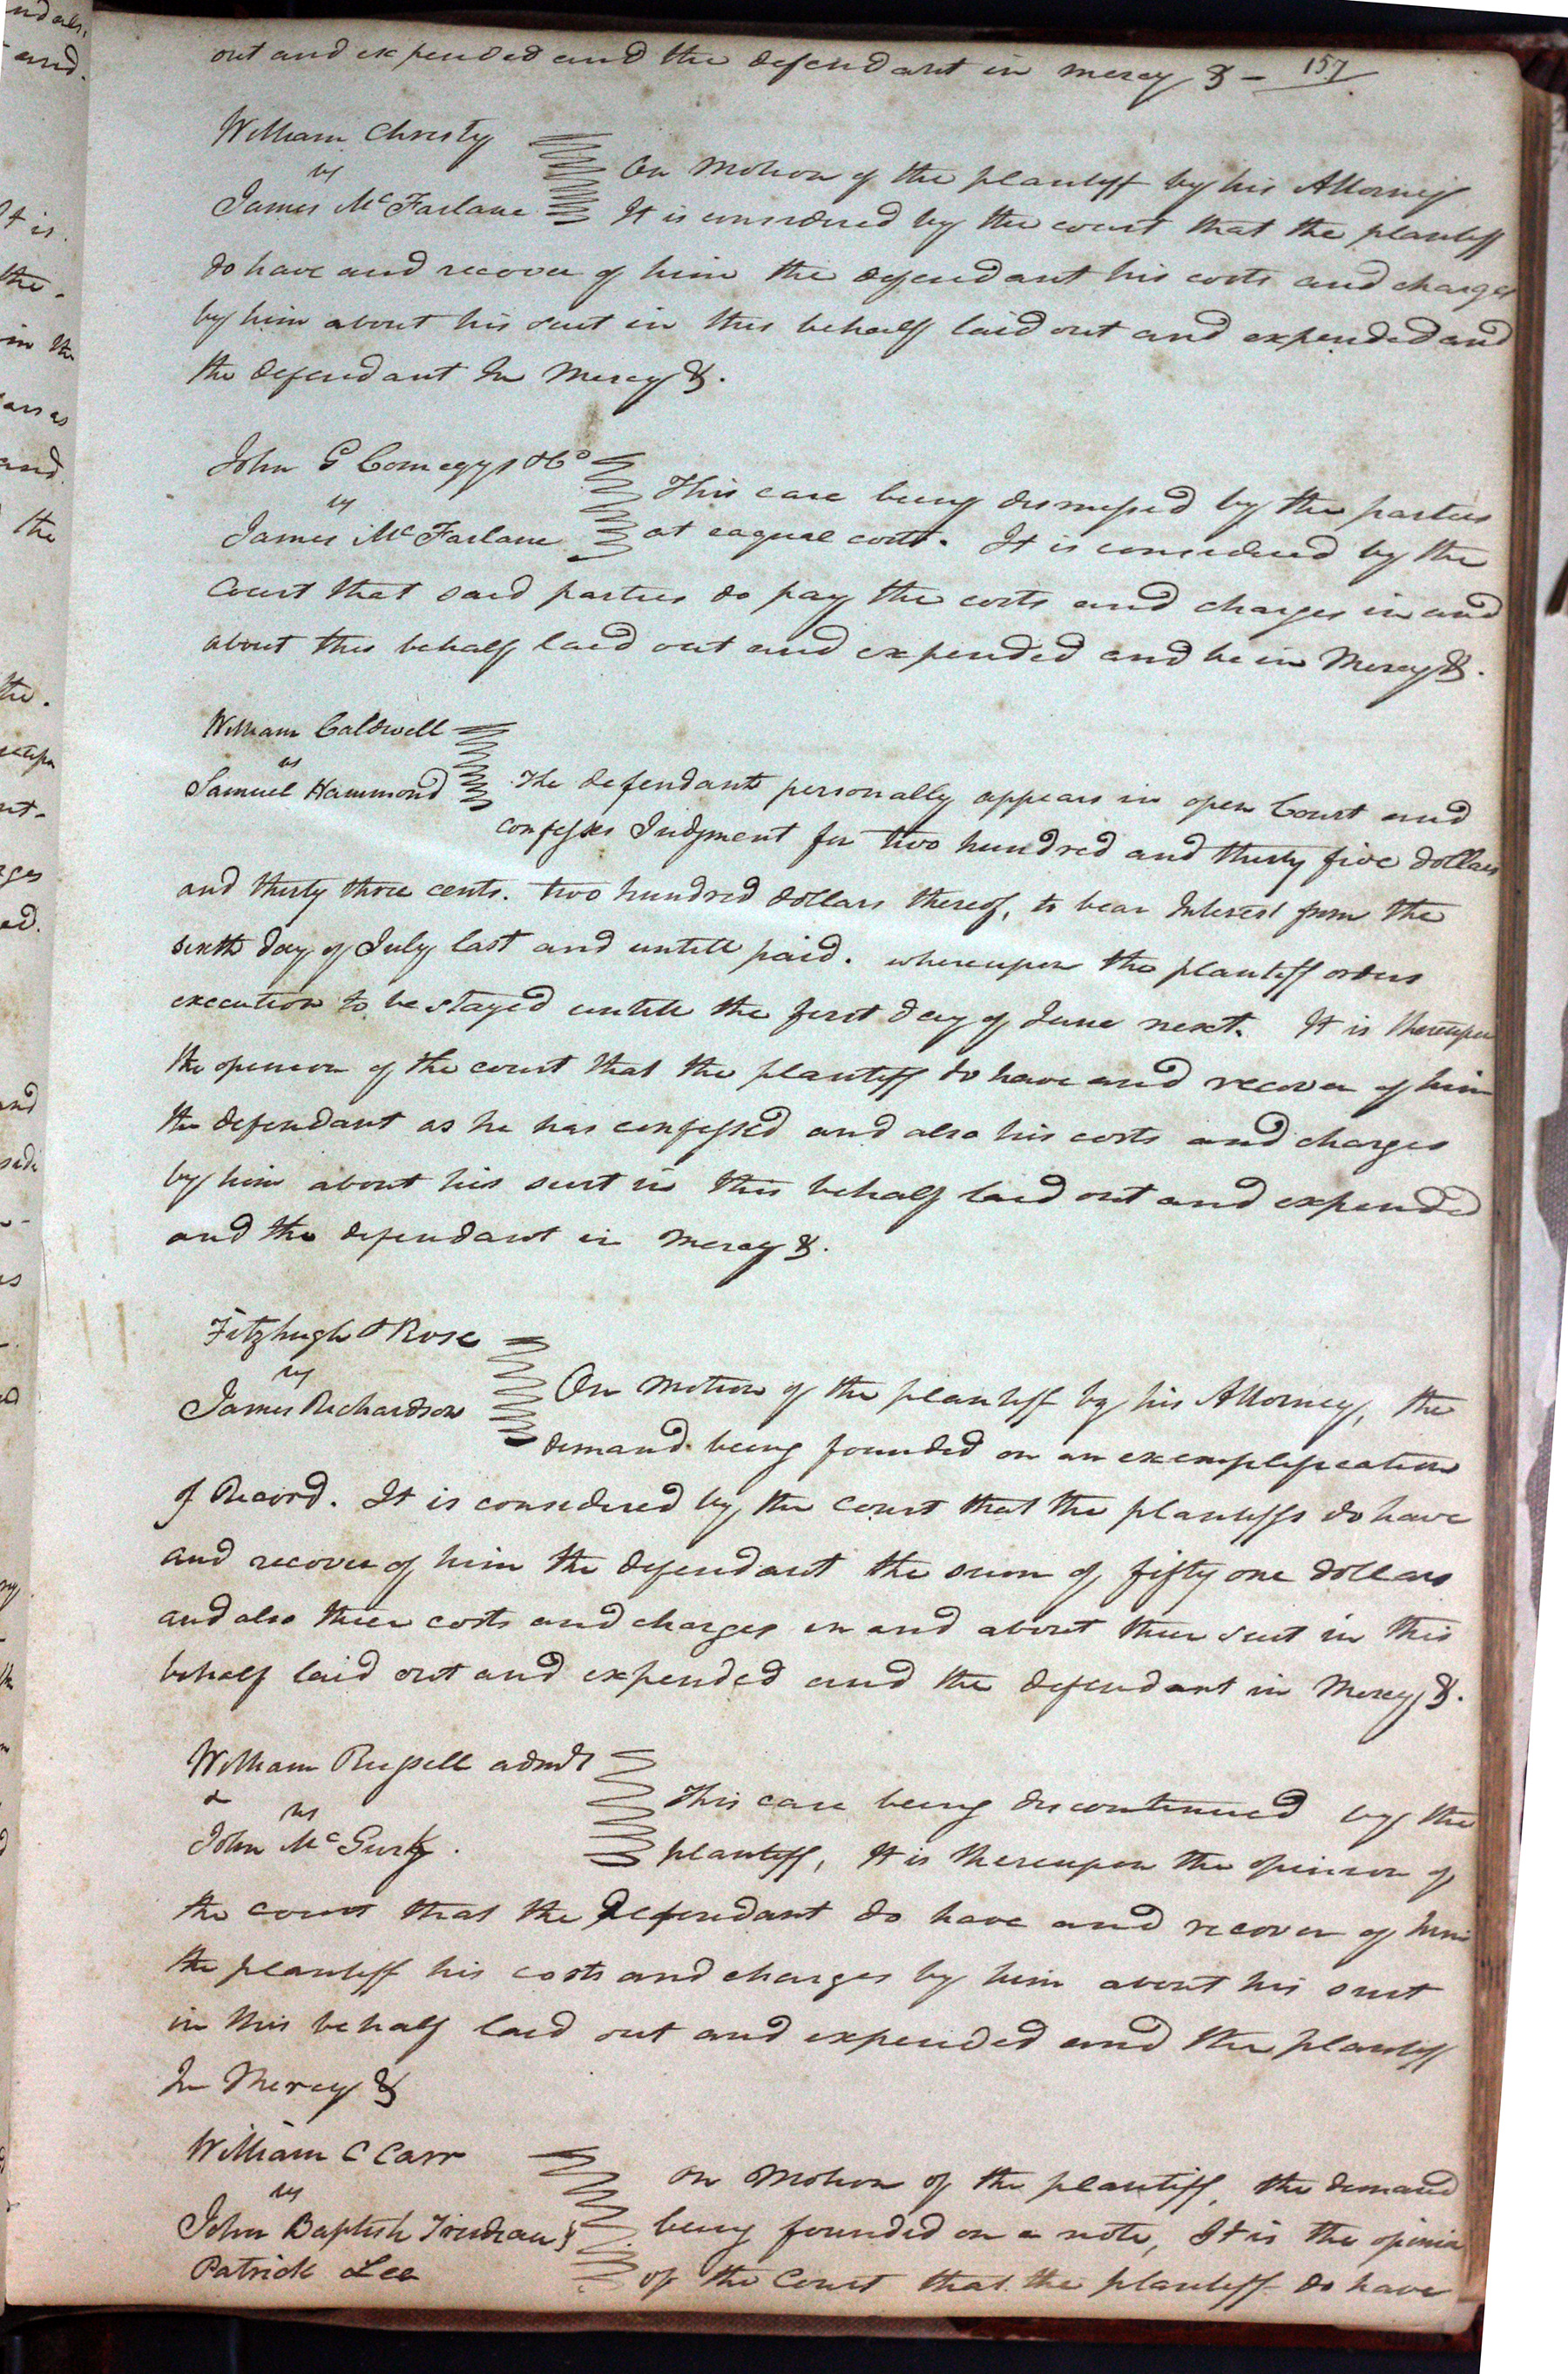 out and expended and the defendant in mercy & — 157
William Christy
vs
James McFarlane
On Motion of the plantiff by his Attorney
It is considered by the court that the plantiff
do have and recover of him the defendant his costs and charges
by him about his suit in this behalf laid out and expended and
the defendant In Mercy &.
John G Comegys & Co
vs
James McFarlane
This case being dismissed by the parties
at eaqual costs. It is considered by the
Court that said parties do pay the costs and charges in and
about this behalf laid out and expended and be in Mercy &.
William Caldwell
vs
Samuel Hammond
The defendant personally appears in open Court and
confesses Judgment for two hundred and thirty five dollars
and thirty three cents. two hundred dollars thereof, to bear Interest from the
sixth day of July last and untill paid. whereupon the plantiff orders
execution to be stayed untill the first day of June next. It is thereupon
the opinion of the court that the plantiff do have and recover of him
the defendant as he has confessed and also his costs and charges
by him about his suit in this behalf laid out and expended
and the defendant in mercy &.
Fitzhugh & Rose
vs
James Richardson
On motion of the plantiff by his Attorney, the
demand being founded on an exemplification
of Record. It is considered by the Court that the plantiffs do have
and recover of him the defendant the sum of fifty one dollars
and also their costs and charges in and about their suit in this
behalf laid out and expended and the defendant in Mercy &.
William Russell admr
vs
John McGurk.
This case being discontinued by the
plantiff, It is thereupon the opinion of
the court that the Defendant do have and recover of him
the plantiff his costs and charges by him about his suit
in this behalf laid out and expended and the plantiff
In Mercy &
William C Carr
vs
John Baptish Trudeau &
Patrick Lee
On Motion of the plantiff, the demand
being founded on a note, It is the opinion
of the Court that the plantiff do have